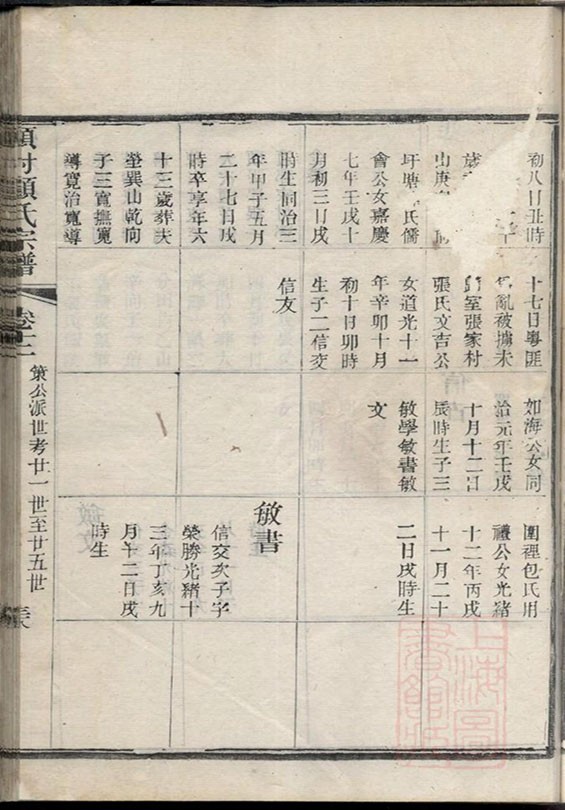 初八日丑時
歲
山庚
圩塘 氏儒
會公女嘉慶
七年壬戌十
月初三日戌
時生同治三
年甲子五月
二十七日戌
時卒享年六
十三歲葬夫
塋巽山乾向
子三寬撫寬
導寬治寬導
十七日粵匪
亂被擄未
室張家村
張氏文吉公
女道光十一
年辛卯十月
初十日卯時
生子二信交
信友
如海公女同
治元年壬戌
十月十二日
辰時生子三
敏學敏書敏
文
圍裡包氏用
禮公女光緒
十二年丙戌
十一月二十
二日戌時生
敏書
信交次子字
榮勝光緒十
三年丁亥九
月十二日戌
時生
項村項氏宗譜
卷十二
策公派世考廿一世至廿五世
上海圖書館藏